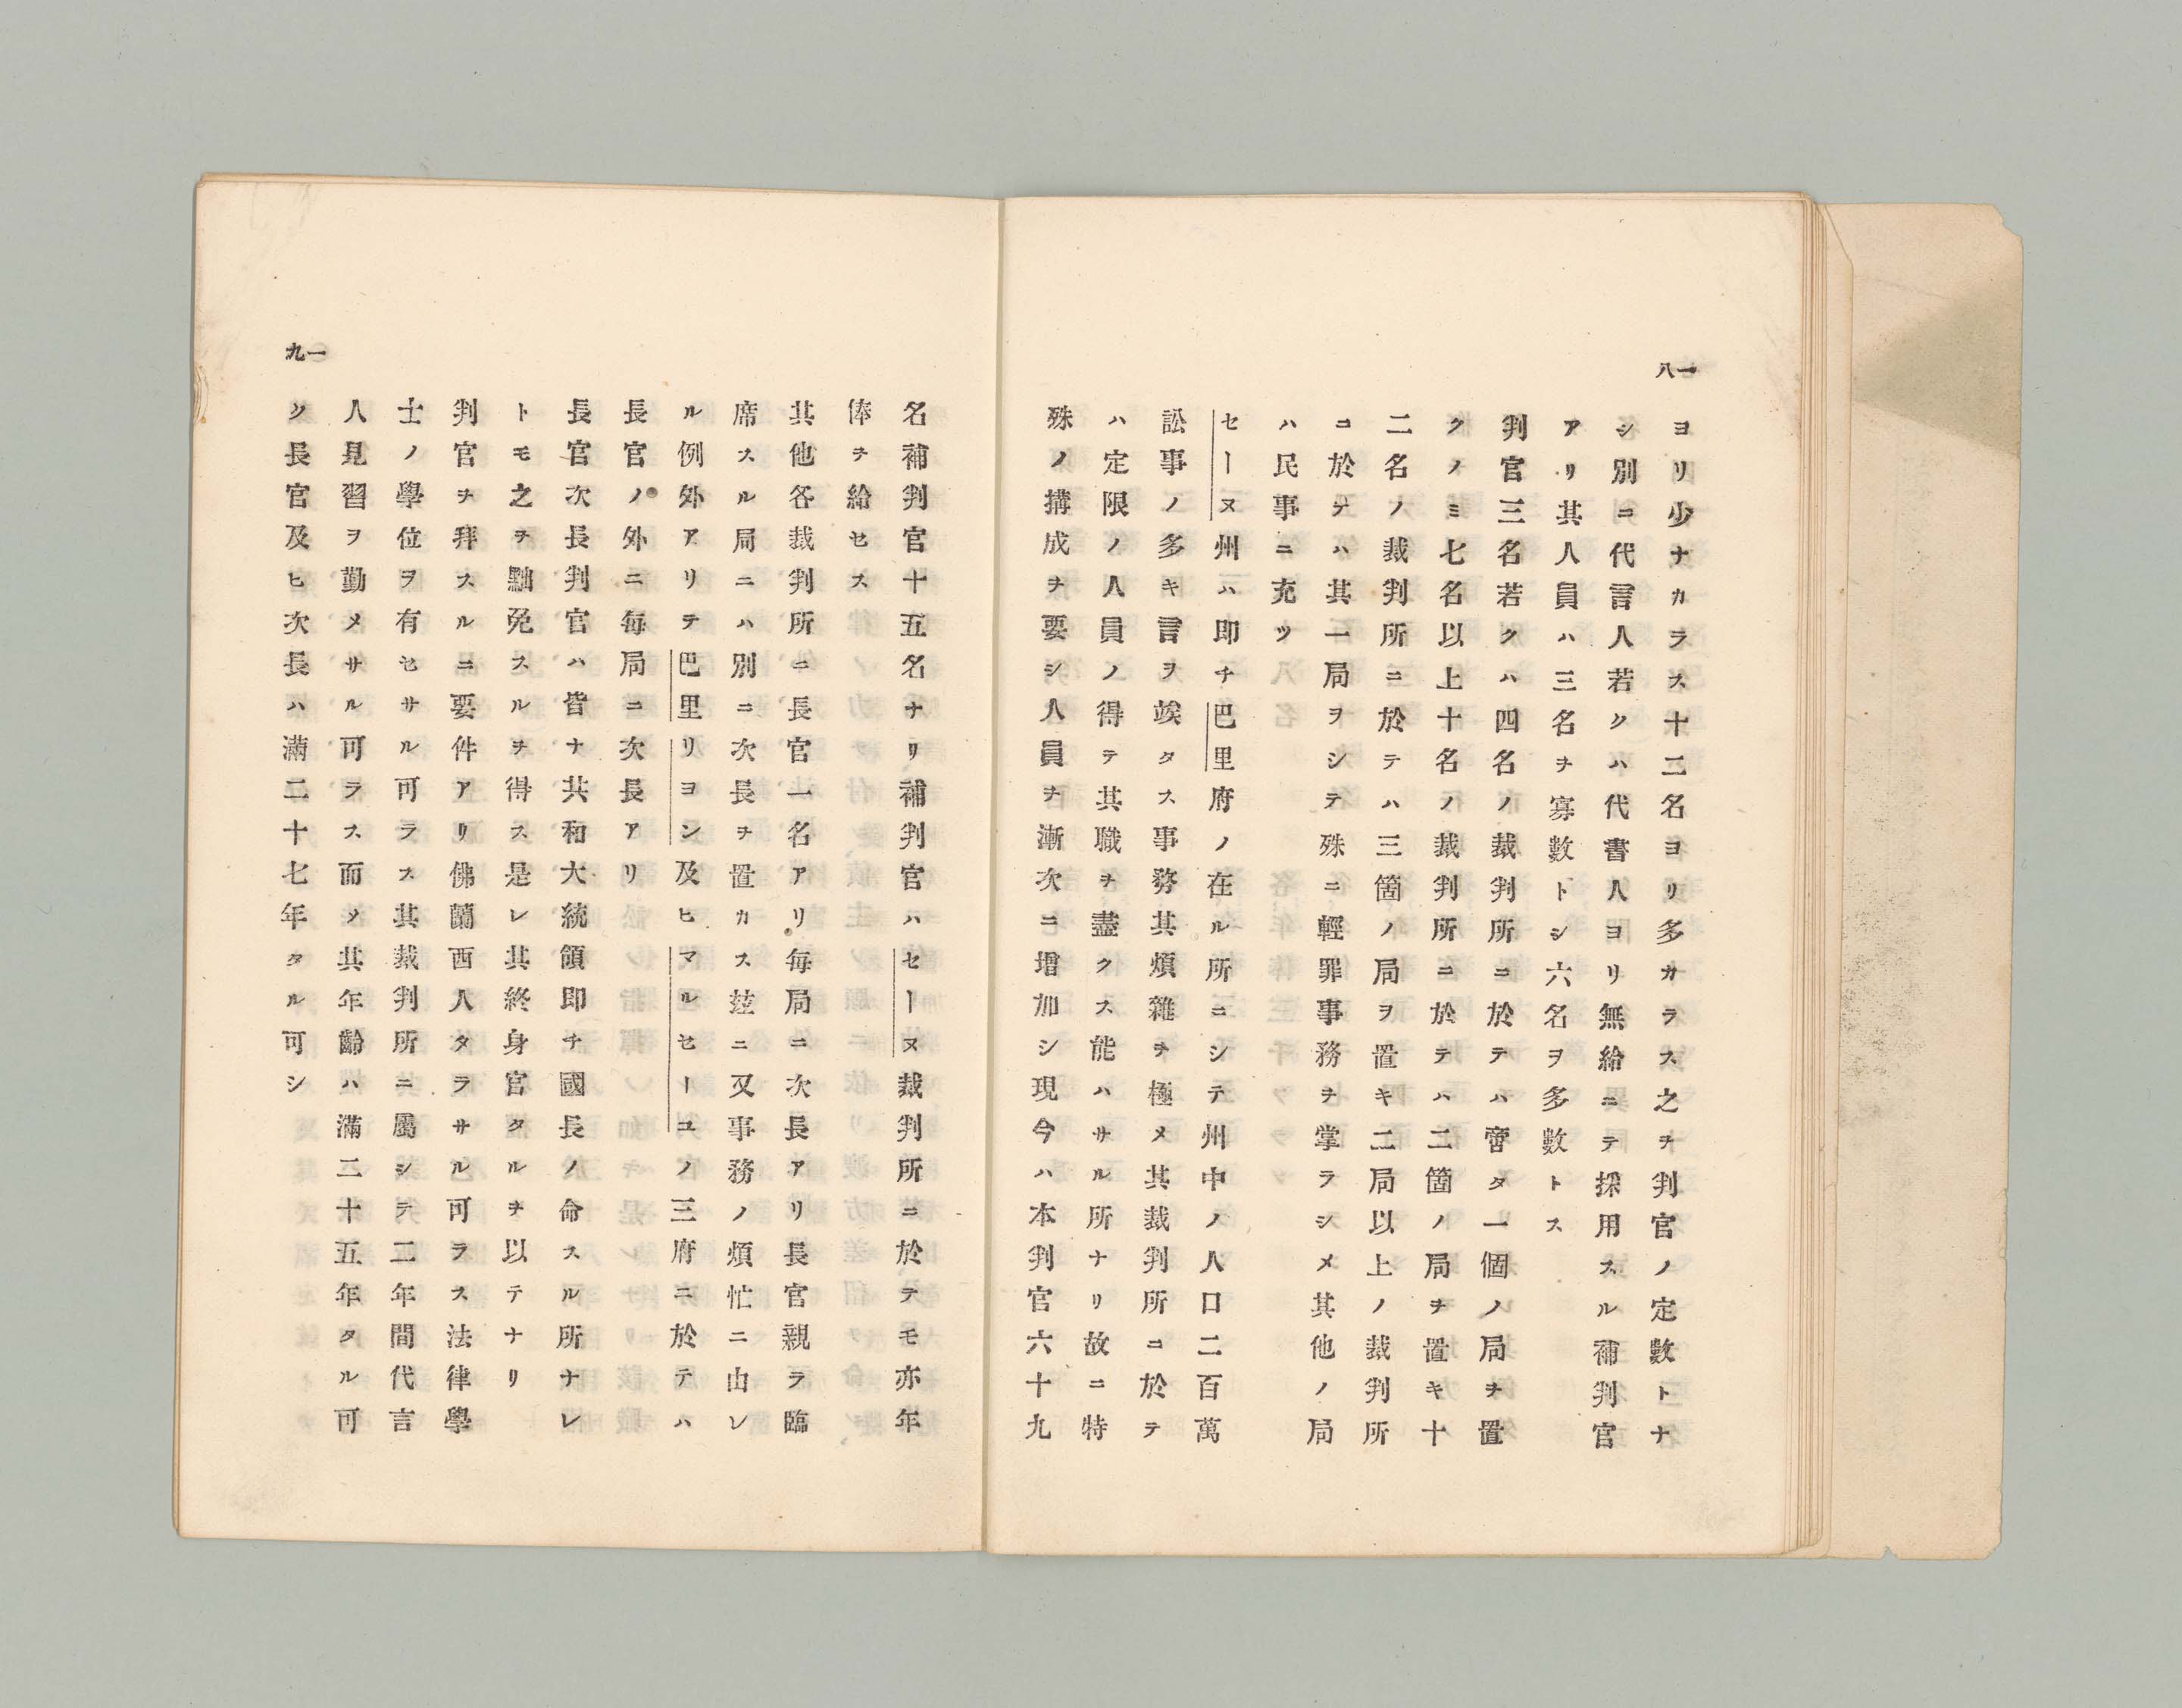 一八
ヨリ少ナカラス十二名ヨリ多カラス之ヲ判官ノ定數トナ
シ別ニ代言人若クハ代書人ヨリ無給ニテ採用スル補判官
アリ其人員ハ三名ヲ寡數トシ六名ヲ多數トス
判官三名若クハ四名ノ裁判所ニ於テハ啻タ一個ノ局ヲ置
クノミ七名以上十名ノ裁判所ニ於テハ二箇ノ局ヲ置キ十
二名ノ裁判所ニ於テハ三箇ノ局ヲ置キ二局以上ノ裁判所
ニ於テハ其一局ヲシテ殊ニ輕罪事務ヲ掌ラシメ其他ノ局
ハ民事ニ充ツ
セーヌ州ハ即チ巴里府ノ在ル所ニシテ州中ノ人口二百萬
訟事ノ多キ言ヲ竢タス事務其煩雜ヲ極メ其裁判所ニ於テ
ハ定限ノ人員ノ得テ其職ヲ盡クス能ハサル所ナリ故ニ特
殊ノ搆成ヲ要シ人員ヲ漸次ニ增加シ現今ハ本判官六十九
一九
名補判官十五名ナリ補判官ハセーヌ裁判所ニ於テモ亦年
俸ヲ給セス
其他各裁判所ニ長官一名アリ毎局ニ次長アリ長官親ラ臨
席スル局ニハ別ニ次長ヲ置カス玆ニ又事務ノ煩忙ニ由レ
ル例外アリテ巴里リヨン及ヒマルセーユノ三府ニ於テハ
長官ノ外ニ毎局ニ次長アリ
長官次長判官ハ皆ナ共和大統領即チ國長ノ命スル所ナレ
トモ之ヲ黜免スルヲ得ス是レ其終身官タルヲ以テナリ
判官ヲ拜スルニ要件アリ佛蘭西人タラサル可ラス法律學
士ノ學位ヲ有セサル可ラス其裁判所ニ屬シテ二年間代言
人見習ヲ勤メサル可ラス而〆其年齡ハ滿二十五年タル可
ク長官及ヒ次長ハ滿二十七年タル可シ